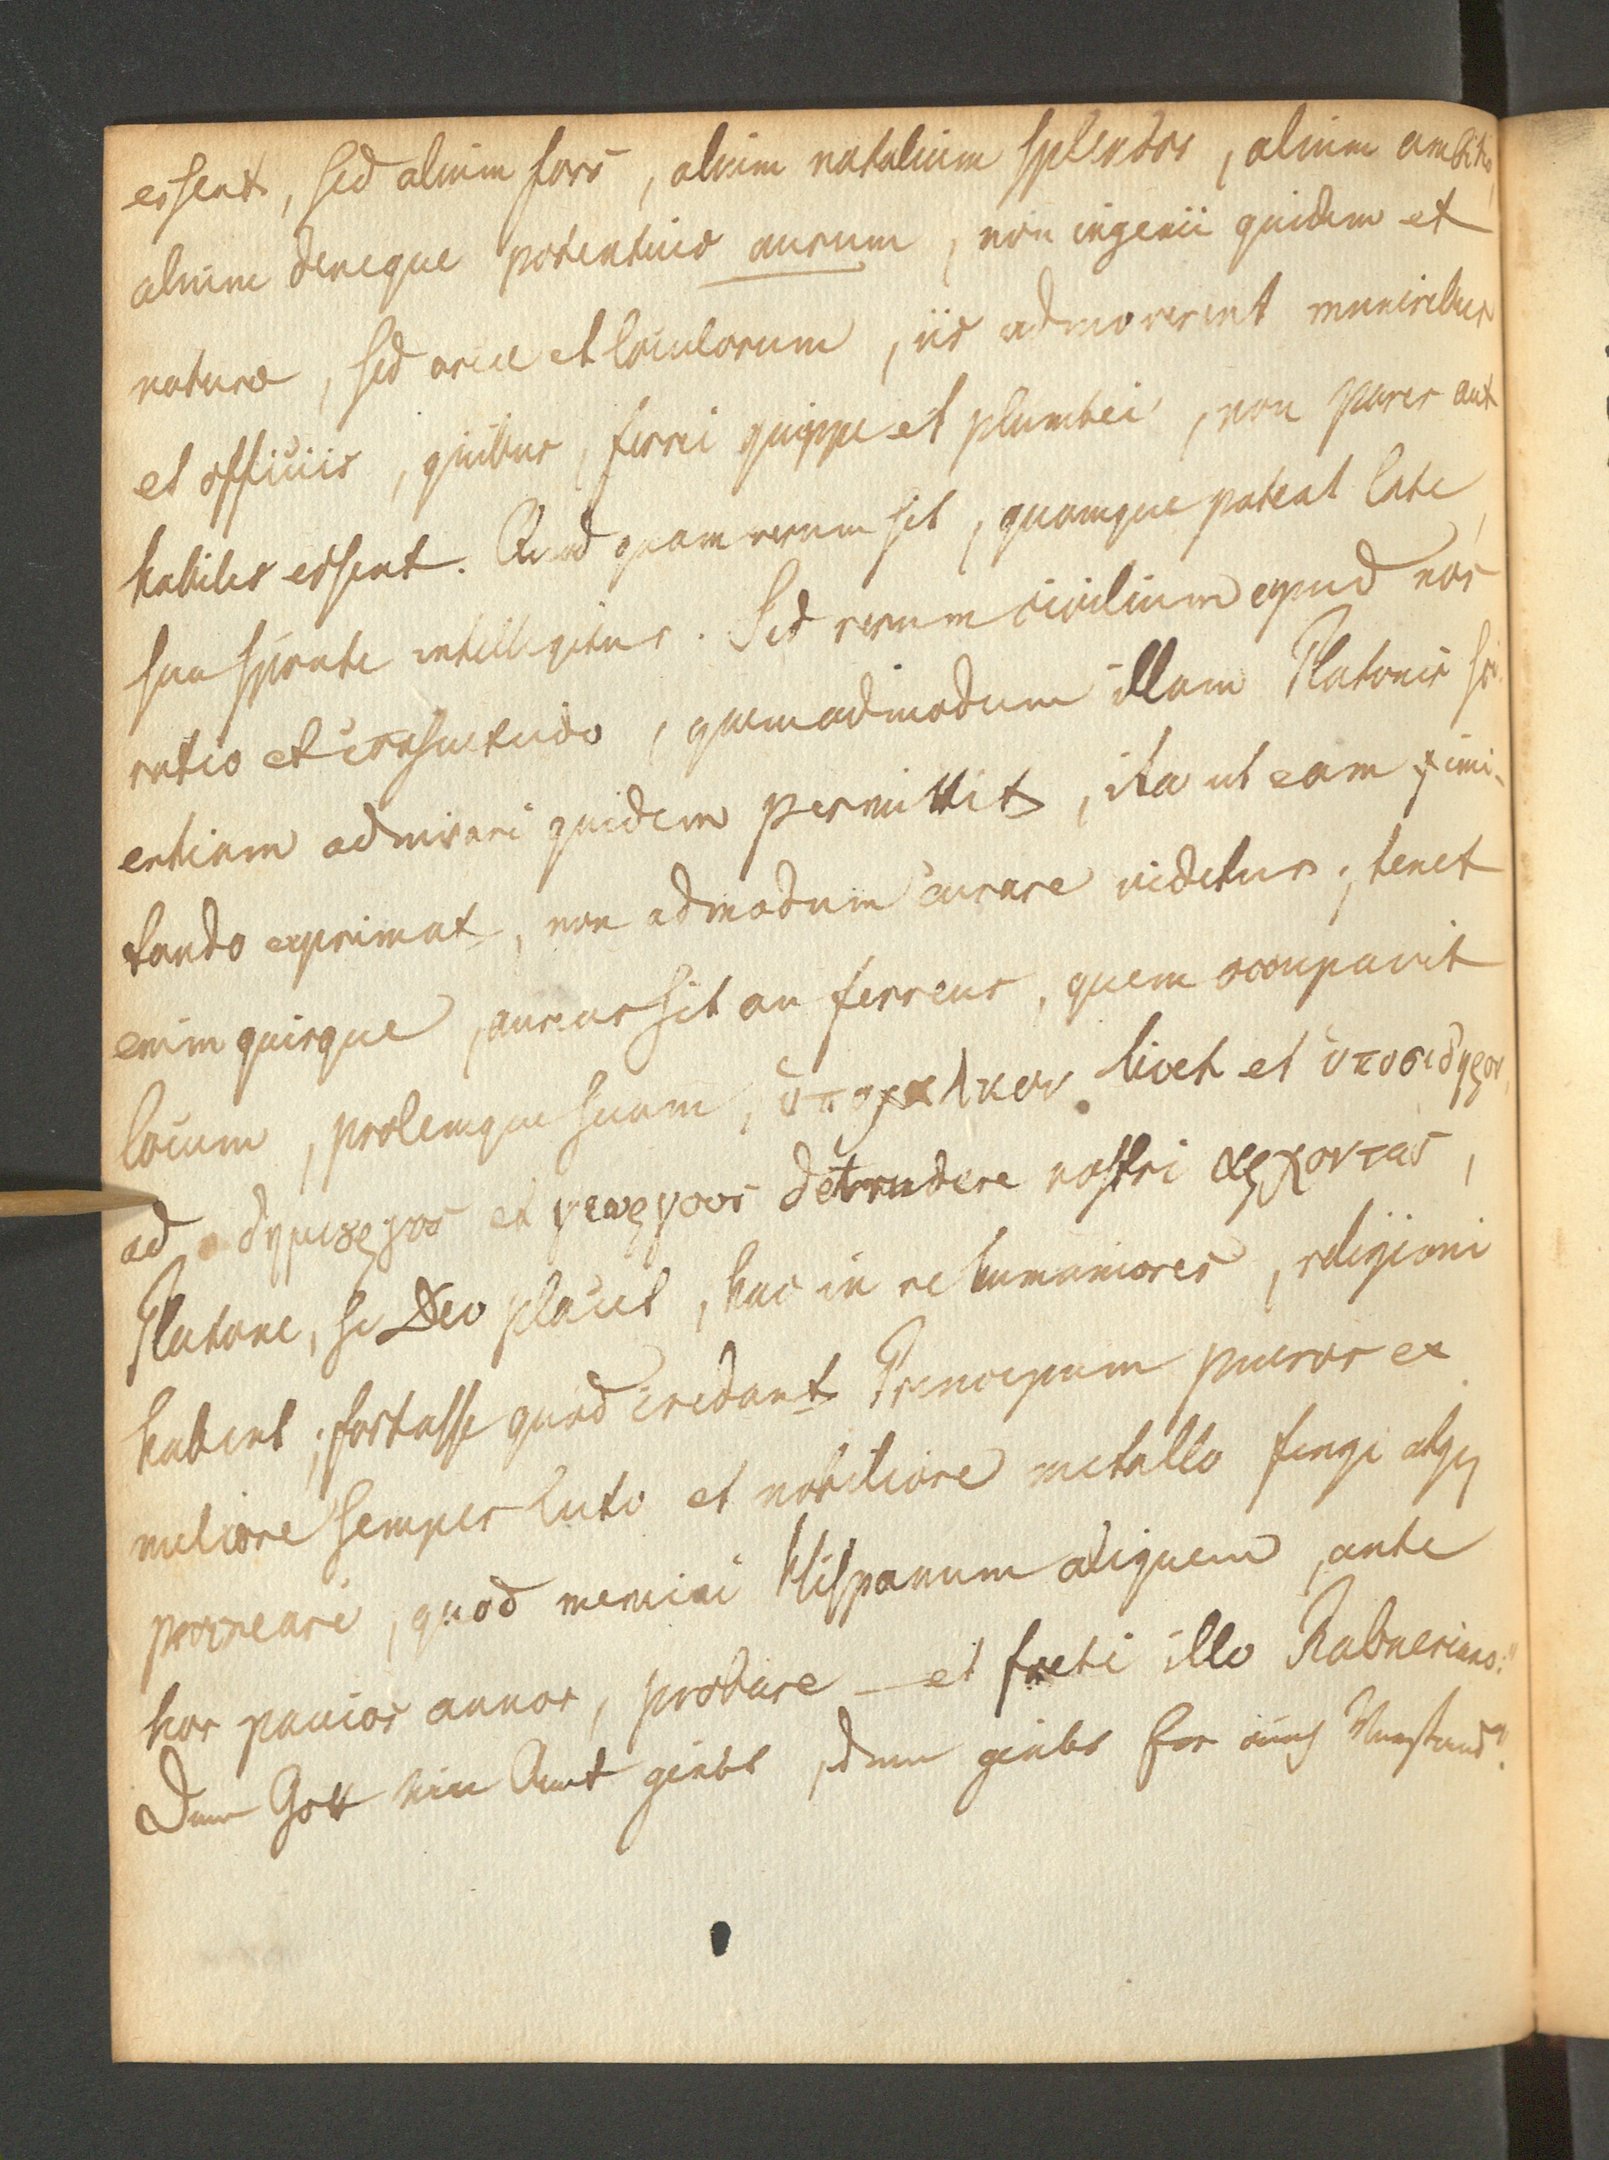 essent, sed alium fors, alium natalium splendor, alium ambitio,
alium denique potentius aurum, non ingenii quidem et
naturæ, sed arcæ et loculorum, iis admoverint muneribus
et officiis, quibus, ferrei quippe et plumbei, non pares aut
habiles essent. Quod quam verum sit, quamque pateat late,
sua sponte intelligitur. Sed rerum civilium apud nos
ratio et consuetudo, quemadmodum illam Platonis sci-
entiam admirari quidem permittit, ita ut eam imi-
tando exprimat, non admodum curare videtur; tenet
enim quisque, aureus sit an ferreus, quem occupavit
locum, prolemque suam, ὑποχαλκον licet et ὑποσιδηρον,
ad δημιȣργοσ et γεωργουσ detrudere nostri αρχοντασ,
Platone, si Deo placet, hac in re humaniores, religioni
habent; fortasse quod credant Principum pueros ex
meliore semper luto et nobiliore metallo fingi atq
procreari, quod memini Hispanum aliquem, ante
hos paucos annos, probare – et freti illo Rabneriano: "
Dem Gott ein Amt giebt, dem giebt Er auch Verstand".